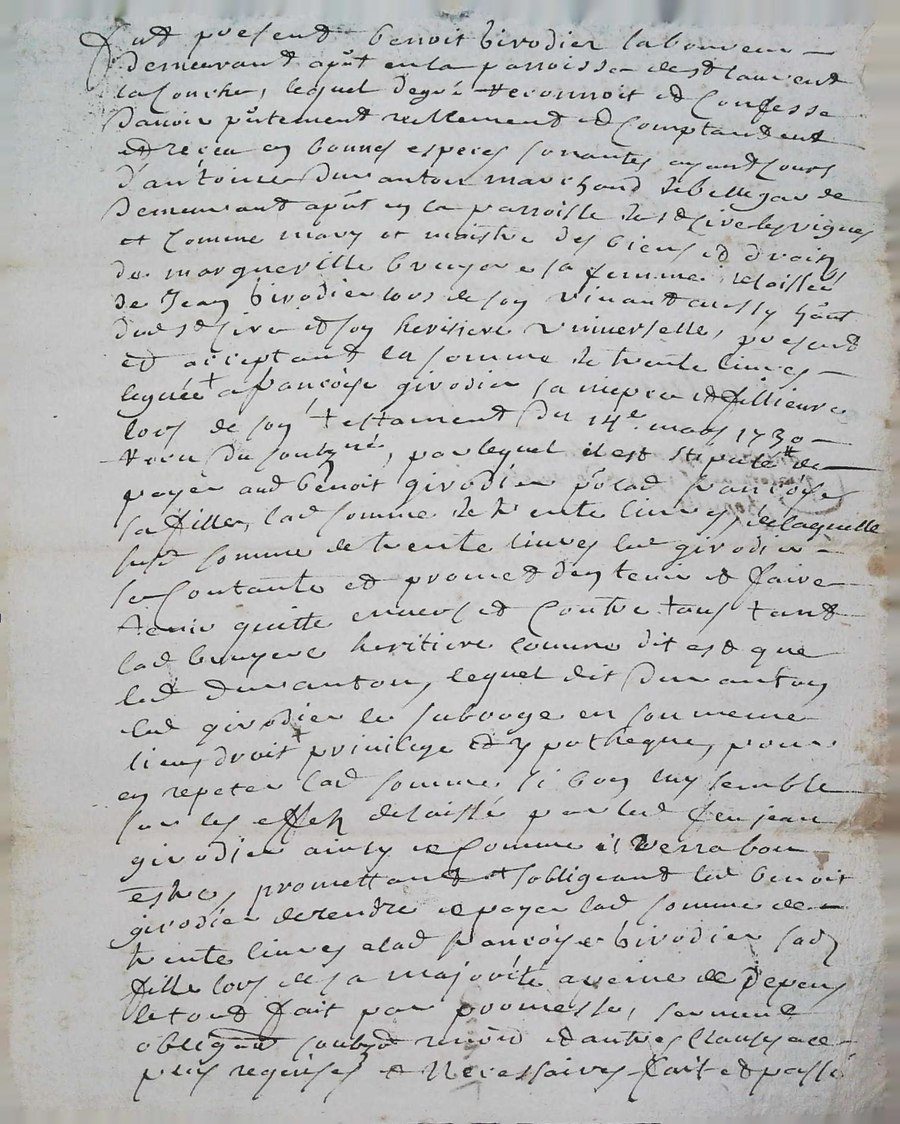 fut present benoit Girodier laboureur
demeurant apnt en la parroisse de st laurent
la Conche, lequel degré reconnoit et Confesse
davoir pntement reellement et Comptandent
et receu en bonnes especes sonantes ayant Cours
d'antoine Duranton marchand de bellegarde
Demeurant apnt en la parroisse de st Cire les vignes
et Comme mary et maistre des biens et droits
de margueritte bruyere sa femme relaissée
de Jean Girodier lors de soy vivant aussy hânt
dud st Cire et soy heritiere universelle, present
et acceptant la somme de trente livres
leguée + a françoise girodier sa niepce et fillieure
lors de soy testament du 14e. mars 1730
receu du soubzné, par lequel il est stipulé de
payer aud benoit girodier pr lad françoise
sa fille, lad somme de trente livres, de laquelle
susd somme de trente livres led girodier
se Contante et promet d'en tenir et faire
tenir quitte envers et Contre tous tant
lad bruyere heritiere comme dit est que
led Duranton, lequel dit Duranton
led girodier le subroge en son meme
lieu, droit privilege et ypotheque, pour
en repeter lad somme si bon luy semble
sur les effets delaissé par led feu jean
girodier ainsy et Comme il verra bon
estre, promettant et sobligeant led benoit
girodier de rendre et payer lad somme de
trente livres a lad françoise Girodier sad
fille lors de sa majorité a peine de Depens
le tout fait par promesse, serment
obligaon soubzon renoon et autres Clauses a ce
plus requises et Necessaires fait et passé